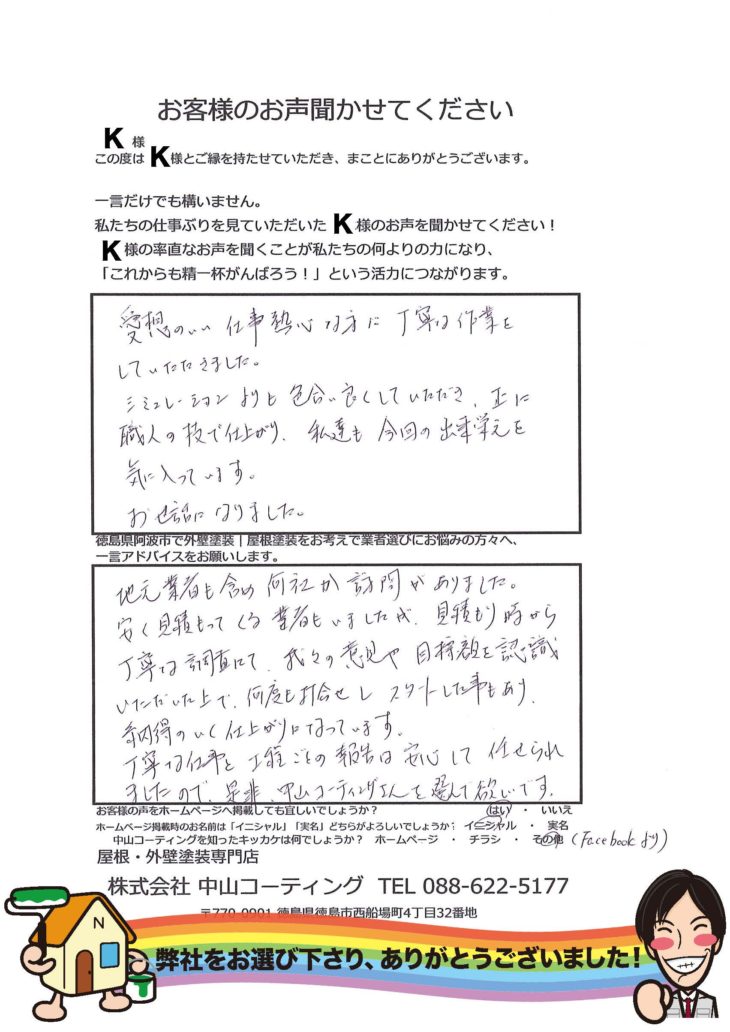 お客様のお声聞かせてください
K 様
この度は K様とご縁を持たせていただき、まことにありがとうございます。
一言だけでも構いません。
私たちの仕事ぶりを見ていただいた K 様のお声を聞かせてください！
K 様の率直なお声を聞くことが私たちの何よりの力になり、
「これからも精一杯がんばろう！」という活力につながります。
愛想のいい 仕事熱心な方に 丁寧な作業を
していただきました。
シミュレーションよりも 色合い良くしていただき、正に
職人の技で仕上がり、私達も 今回の出来栄えを
気に入っています。
お世話になりました。
徳島県阿波市で外壁塗装｜屋根塗装をお考えで業者選びにお悩みの方々へ、
一言アドバイスをお願いします。
地元業者も含め 何社か 訪問がありました。
安く見積もってくる業者もいましたが、見積もり時から
丁寧な調査にて、我々の意見や 目標額を認識
いただいた上で、何度も打合せし スタートした事もあり、
納得のいく仕上がりになっています。
丁寧な仕事と 工程ごとの報告は 安心して 任せられ
ましたので、是非、中山コーティングさんを選んで欲しいです。
お客様の声をホームページへ掲載しても宜しいでしょうか？ はい ・ いいえ
ホームページ掲載時のお名前は「イニシャル」「実名」どちらがよろしいでしょうか？ イニシャル ・ 実名
中山コーティングを知ったキッカケは何でしょうか？ ホームページ ・ チラシ ・ その他 (Facebookより)
屋根・外壁塗装専門店
株式会社 中山コーティング TEL 088-622-5177
〒770-0901 徳島県徳島市西船場町4丁目32番地
N
弊社をお選び下さり、ありがとうございました！